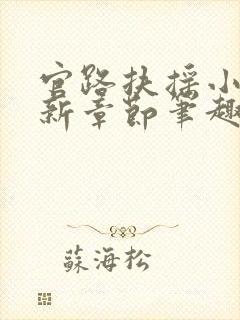 官路扶摇小
新章節筆趣
蘇海松